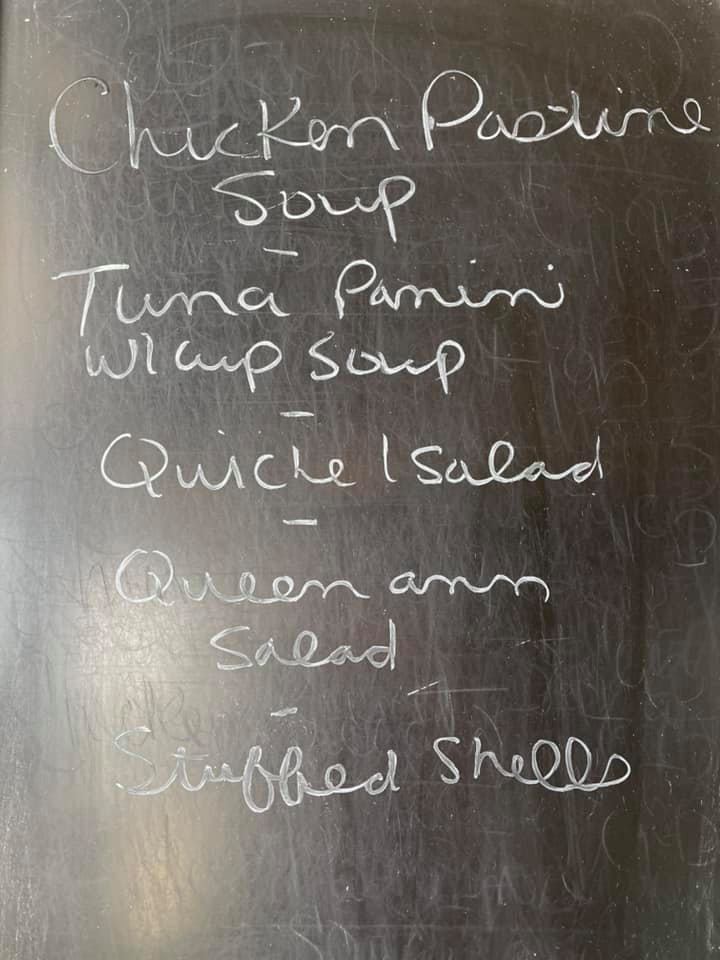 Chicken Pastine
Soup
-
Tuna Panini
w/cup Soup
-
Quiche / Salad
-
Queen ann
Salad
-
Stuffed Shells